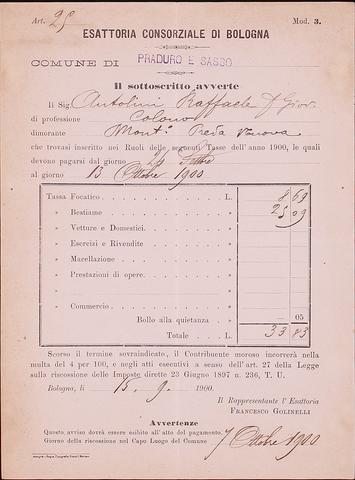 Art. 25 Mod. 3.
ESATTORIA CONSORZIALE DI BOLOGNA
COMUNE DI PRADURO E SASSO
Il sottoscritto avverte
Il Sig. Antolini Raffaele f Giov.
di professione Colono
dimorante Mont.
che trovasi inscritto nei Ruoli delle seguenti Tasse dell'anno 1900, le quali
devono pagarsi dal giorno 29 Settbre
al giorno 13 Ottobre 1900
Tassa Focatico L. 8 69
» Bestiame » 25 09
» Vetture e Domestici »
» Esercizi e Rivendite »
» Macellazione »
» Prestazioni di opere »
» »
» »
» Commercio »
Bollo alla quietanza » — 05
Totale L. 33 83
Scorso il termine sovraindicato, il Contribuente moroso incorrerà nella
multa del 4 per 100, e negli atti esecutivi a senso dell'art. 27 della Legge
sulla riscossione delle Imposte dirette 23 Giugno 1897 n. 236, T. U.
Bologna, li 15. 9. 1900.
Il Rappresentante l'Esattoria
FRANCESCO GOLINELLI
Avvertenze
Questo avviso dovrà essere esibito all'atto del pagamento.
Giorno della riscossione nel Capo Luogo del Comune 7 Ottobre 1900